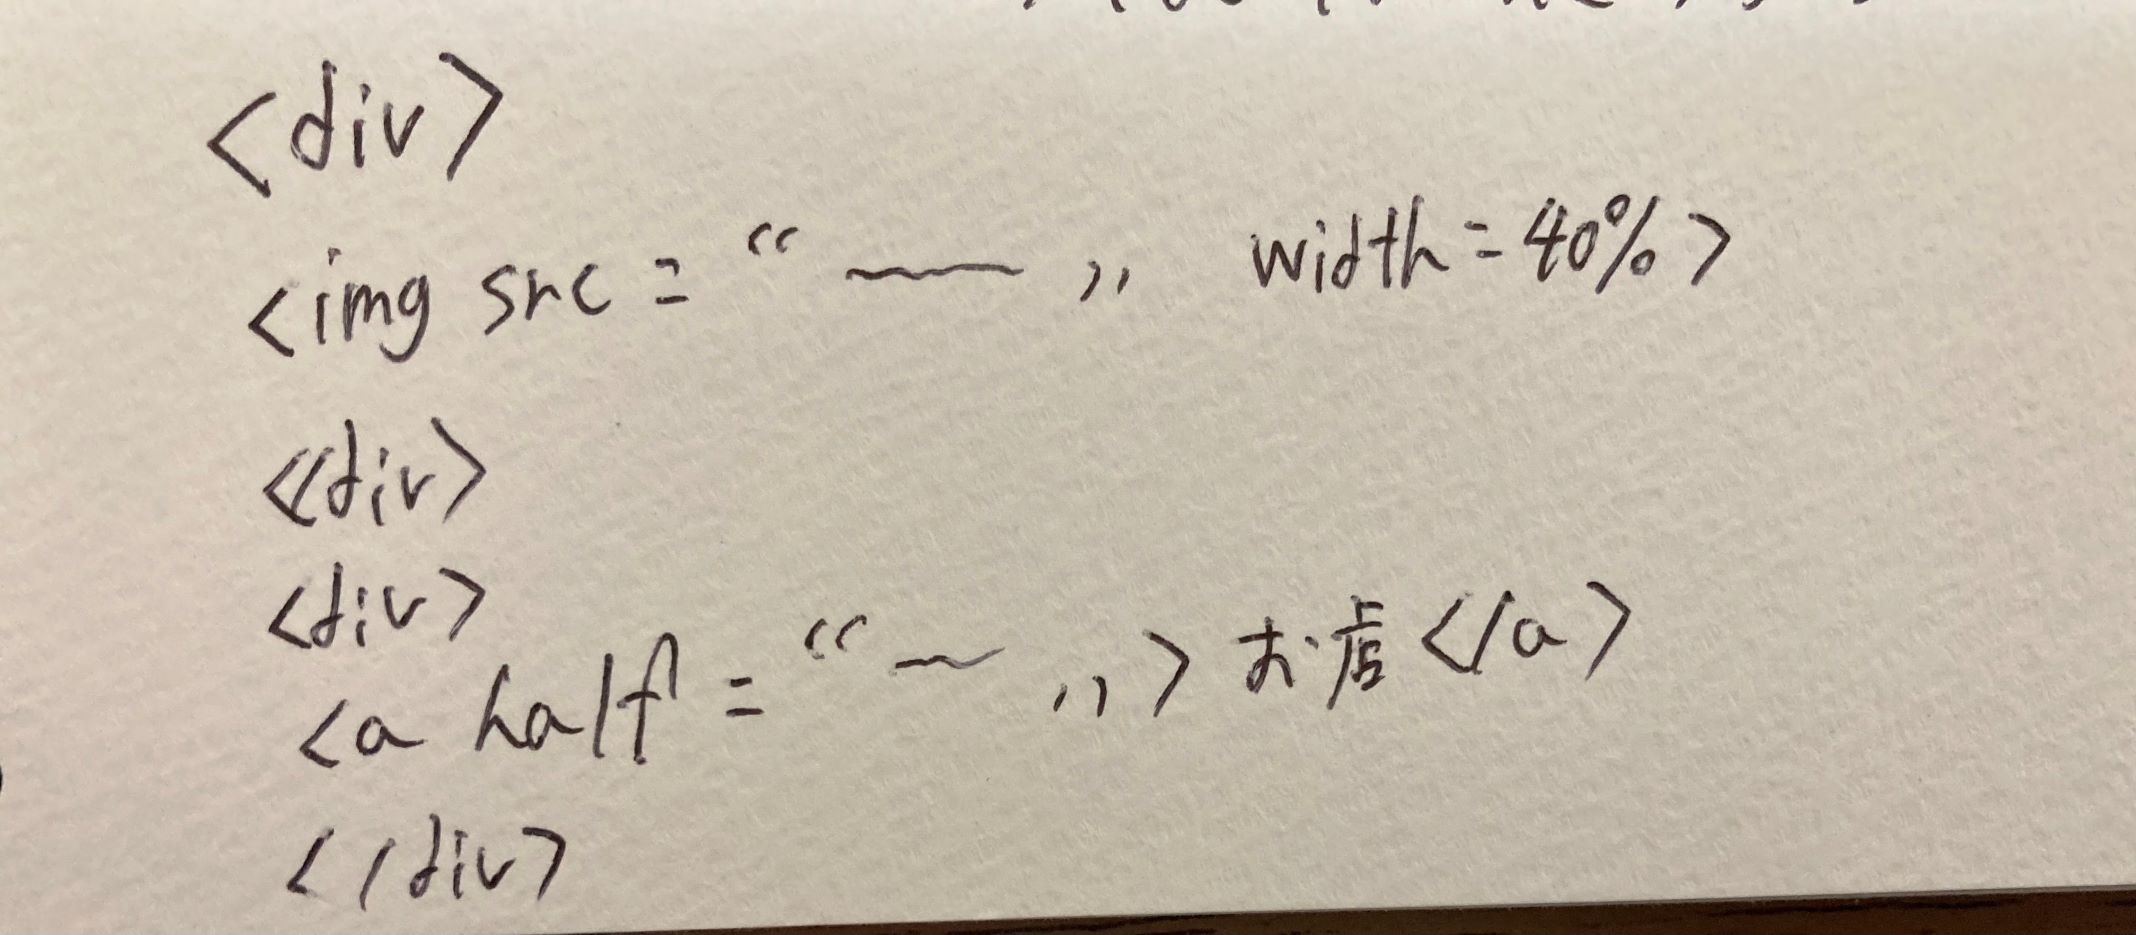 <div>
<img src = “ ～ ” width = 40%>
</div>
<div>
<a half = “ ～ ” > お店 </a>
</div>